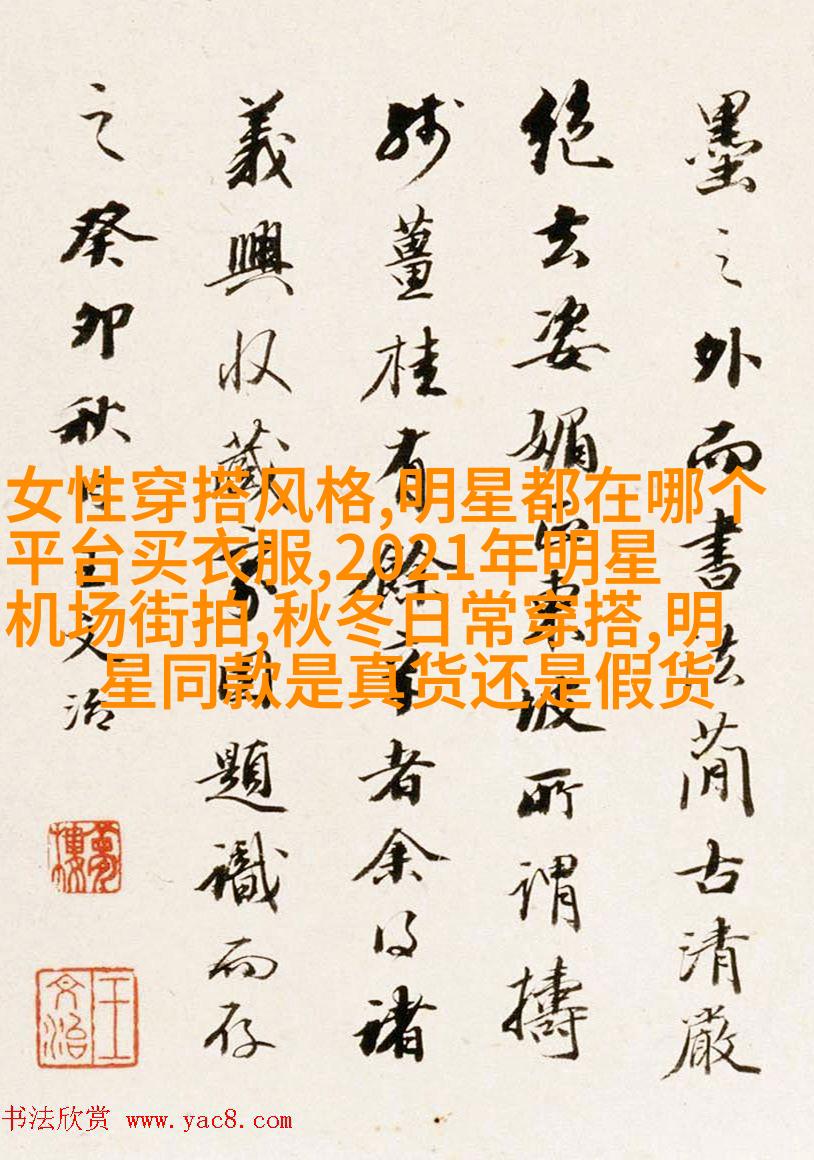 墨之外而書法簡古清嚴
絶去姿媚東坡所謂擣
殘薑桂有餘辛者余得諸
義興收藏家題識而存
之癸卯秋王文治
夢樓
王文治
女性穿搭风格,明星都在哪个
平台买衣服,2021年明星
机场街拍,秋冬日常穿搭,明
星同款是真货还是假货
书法欣赏 www.yac8.com